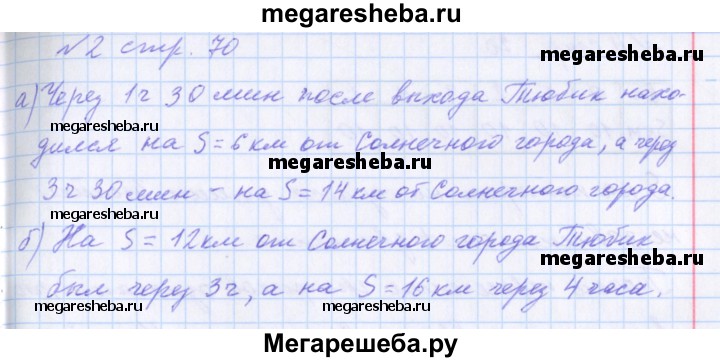 megaresheba.ru
№2 стр. 70
а) Через 1ч 30 мин после выхода Тюбик нахо-
megaresheba.ru megaresheba.ru
дился на S=6км от Солнечного города, а через
megaresheba.ru
3ч 30 мин - на S=14км от Солнечного города.
б) На S=12км от Солнечного города Тюбик
megaresheba.ru
был через 3ч, а на S=16 км через 4 часа.
megaresheba.ru megaresheba.ru
Мегарешеба.ру